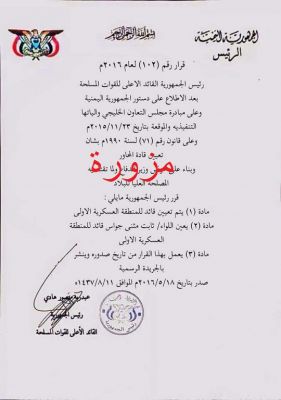 الجمهورية اليمنية
الرئيس
بسم الله الرحمن الرحيم
قرار رقم (١٠٢) لعام ٢٠١٦م
رئيس الجمهورية القائد الاعلى للقوات المسلحة
بعد الاطلاع على دستور الجمهورية اليمنية
وعلى مبادرة مجلس التعاون الخليجي والياتها
التنفيذيه والموقعة بتاريخ ٢٠١١/١١/٢٣م
وعلى قانون رقم (٧١) لسنة ١٩٩٠م بشان
تعيين قادة المحاور
وبناء على وزير الدفاع ولما تقتضيه
المصلحه العليا للبلاد
مزورة
قرر رئيس الجمهورية مايلي :
مادة (١) يتم تعيين قائد للمنطقة العسكرية الاولى
مادة (٢) يعين اللواء/ ثابت مثنى جواس قائد للمنطقة
العسكرية الاولى
مادة (٣) يعمل بهذا القرار من تاريخ صدوره وينشر
بالجريدة الرسمية
صدر بتاريخ ٢٠١٦/٥/١٨م الموافق ١٤٣٧/٨/١١ه
عبدربه منصور هادي
رئيس الجمهورية
القائد الأعلى للقوات المسلحة